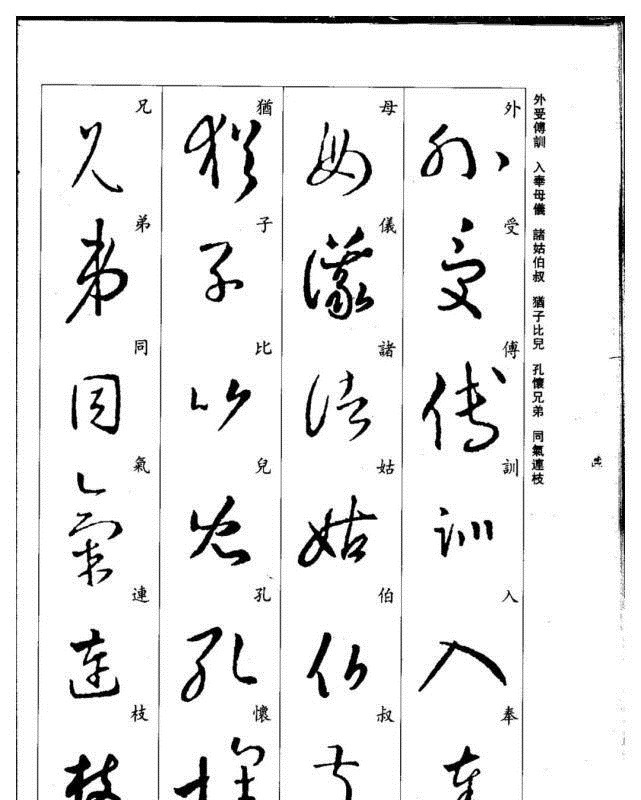 外受傅訓 入奉母儀 諸姑伯叔 猶子比兒 孔懷兄弟 同氣連枝
外受傅訓入奉
母儀諸姑伯叔
猶子比兒孔懷
兄弟同氣連枝